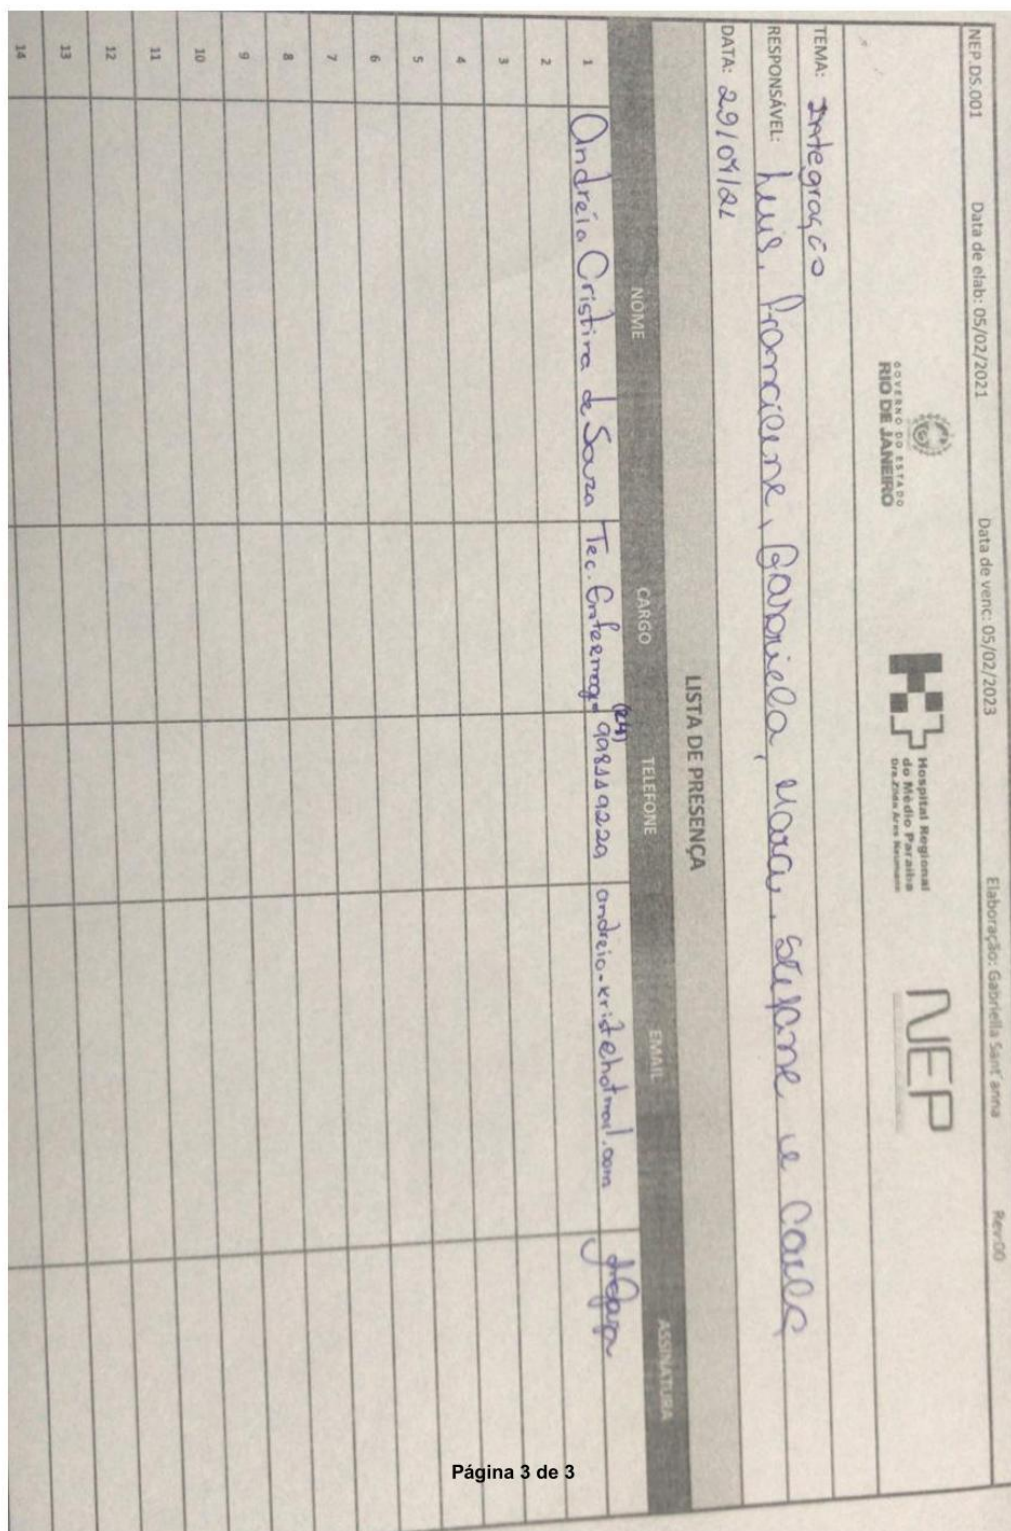 NEP.DS.001 Data de elab: 05/02/2021 Data de venc: 05/02/2023 Elaboração: Gabriella Sant´anna Rev:00
GOVERNO DO ESTADO
RIO DE JANEIRO
Hospital Regional
do Médio Paraíba
Dra.Zilda Arns Neumann
NEP
TEMA: Integração
RESPONSÁVEL: Luis, Francilene, Gabriela, Marcu, Stefane e Carla
DATA: 29/04/21
LISTA DE PRESENÇA
NOME CARGO TELEFONE EMAIL ASSINATURA
1 Andreia Cristina de Souza Tec. Enfermagem (24) 998119229 andreia-krist@hotmail.com
2
3
4
5
6
7
8
9
10
11
12
13
14
Página 3 de 3